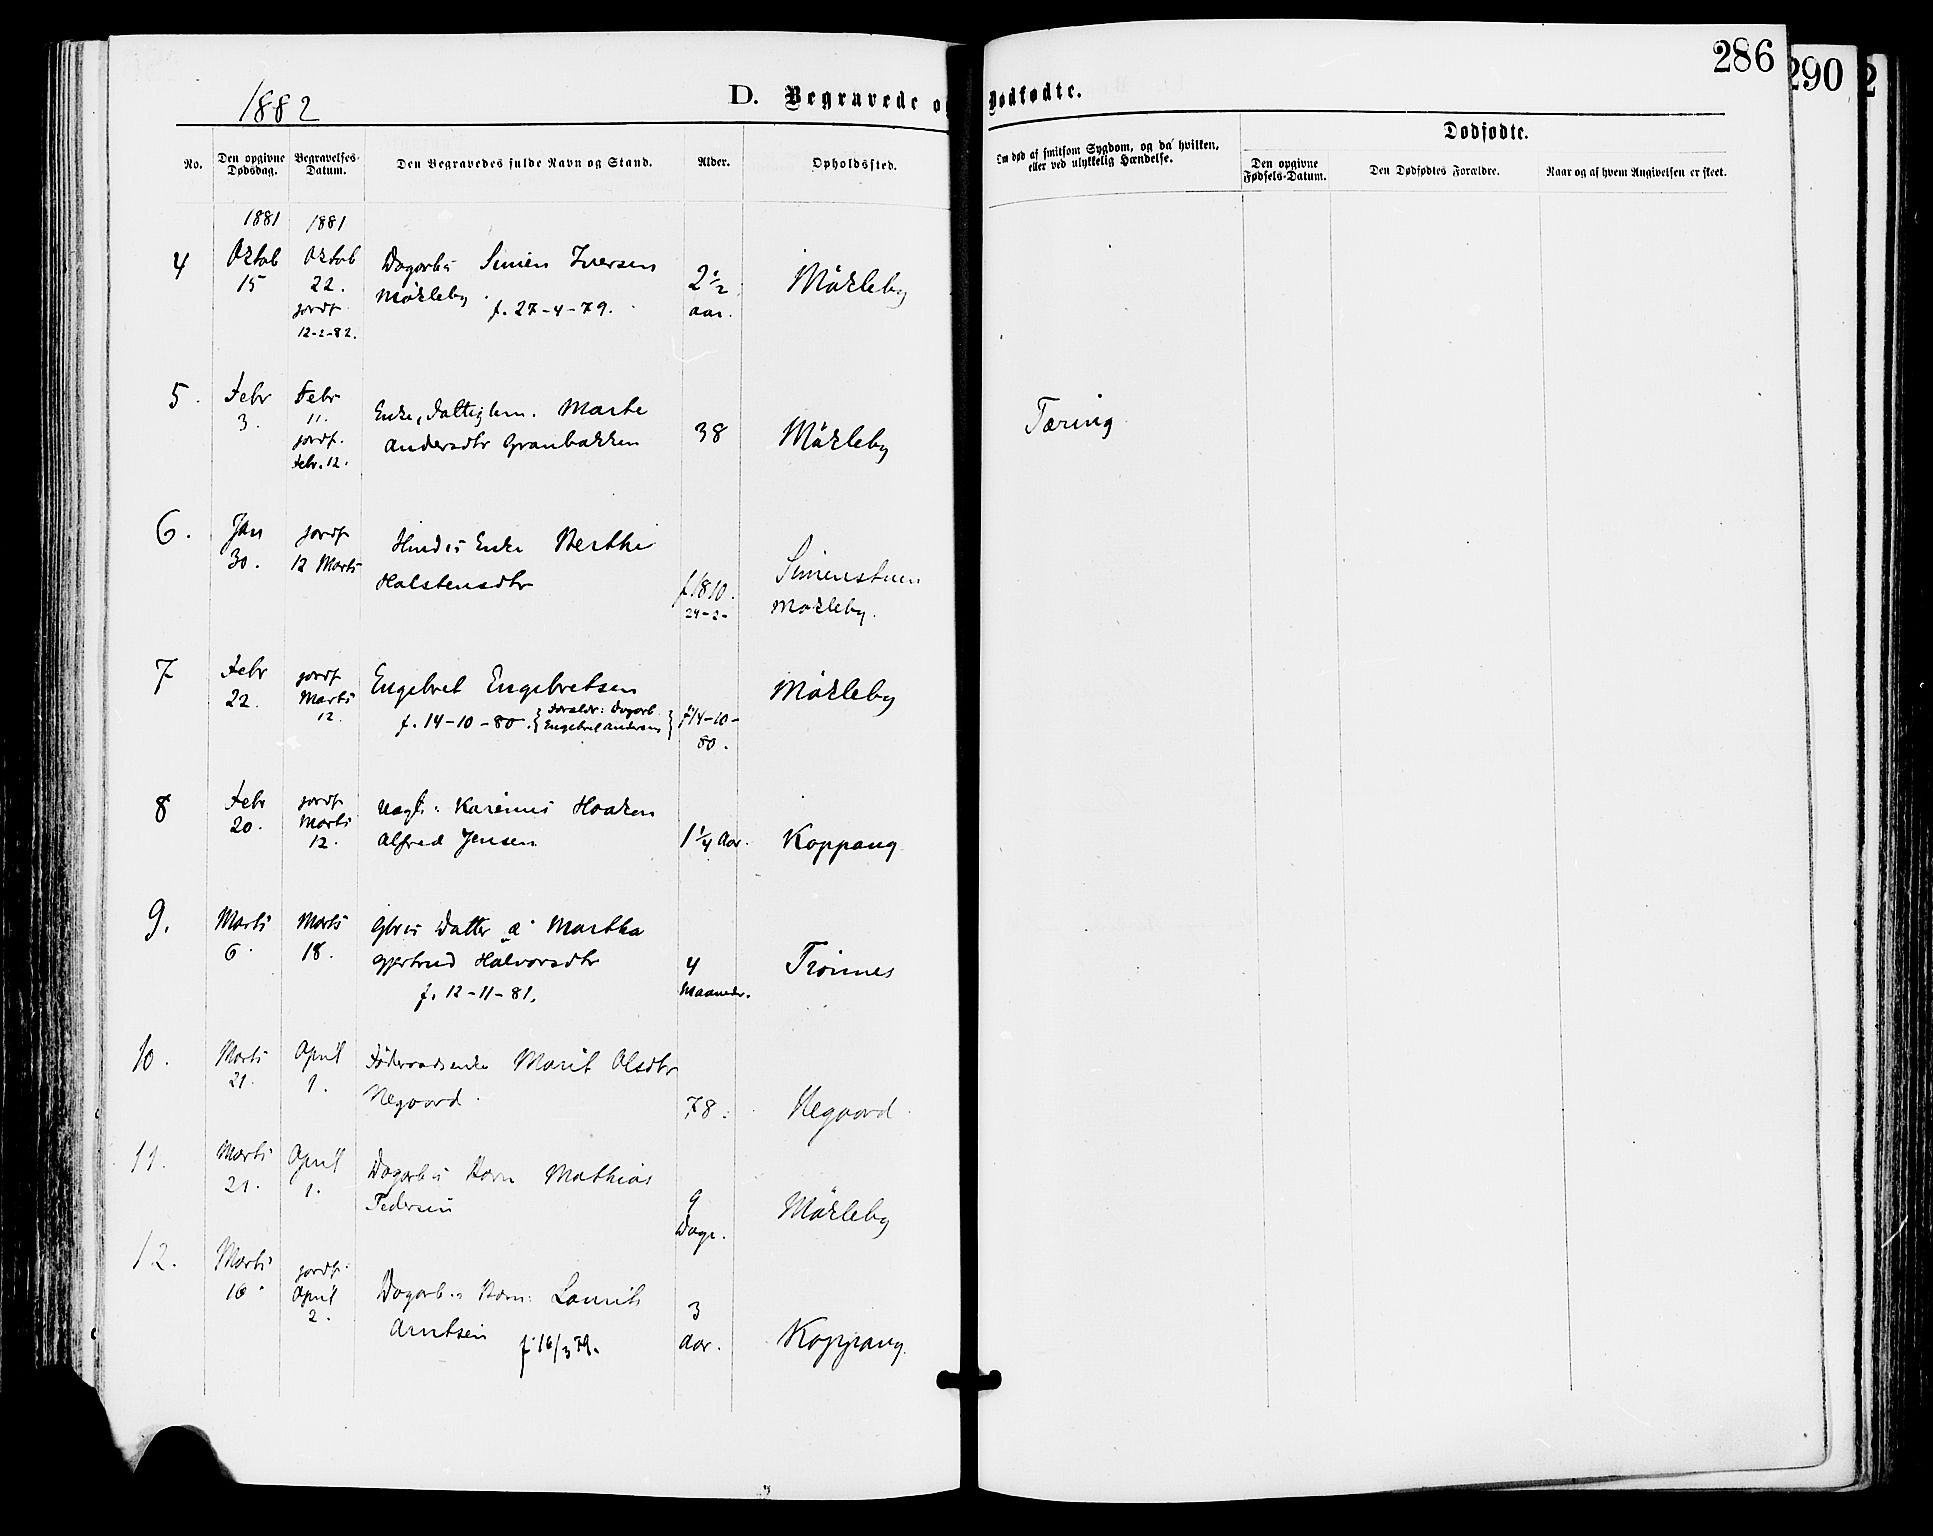 286
290
2
1882
D. Begravede og Dødfødte.
No.
Den opgivne Dødsdag.
Begravelses-Datum.
Den Begravedes fulde Navn og Stand.
Alder.
Opholdssted.
Om død af smitsom Sygdom, og da hvilken,
eller ved ulykkelig Hændelse.
Dødfødte.
Den opgivne Fødsels-Datum.
Den Dødfødtes Forældre.
Naar og af hvem Angivelsen er skeet.
1881 1881
4 Oktob 15 Oktob 22. jordf. 12-2-82.
Dagarb:s Simen Iversen
Mökleby. f. 27-4-79.
2 1/2 aar.
Mökleby
5. Febr 3. Febr 11. jordf. Febr. 12.
Enke, Marte
Andersdtr Granbakken
38
Mökleby
Tæring
6. Jan 30. jordf 12 Marts
Enke Berthe
Halstensdtr
f 1810. 24-2-
Simenstuen
Mökleby.
7 Febr 22. jordf Marts 12.
Engebret Engebretsen
f. 14-10-80. {Foreldr: Dagarb Engebret Andersen}
f 14-10-80.
Mökleby
8 Febr 20. jordf Marts 12.
Karinus Haaken
Alfred Jensen
1 1/4 Aar.
Koppang
9. Marts 6. Marts 18.
Gbr:s Datter æ Martha
Gjertrud Halvorsdtr
f. 12-11-81.
4 Maaneder.
Trönnes
10. Marts 21. April 1.
Føderaadsenke Marit Olsdtr
Negaard.
78.
Negaard.
11. Marts 21. April 1.
Dagarb:s Barn Mathias
Pedersen
9 Dage.
Mökleby
12. Marts 16. jordf. April 2.
Dagarb:s Barn: Laurits
Arntsen f 16/3 79.
3 Aar.
Koppang.